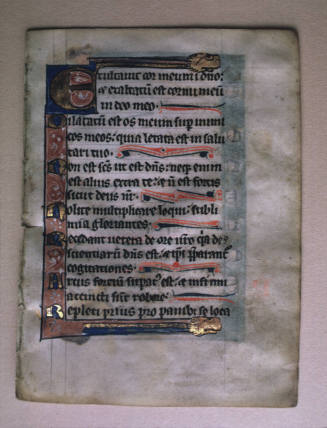 Exultavit cor meum i dno:
& exaltatū est cornu meū
in deo meo.
Dilatatū est os meum sup inimi
cos meos: quia letata est in salu
tari tuo.
Non est scs ut est dns: neqz enim
est alius extra te: & ñ est fortis
sicut deus nr.
Nolite multiplicare loqui: subli
mia gloriantes.
Recedant uetera de ore uro: qa ds
scientiarū dns est: & ipi pparant
cogitationes.
Arcus fortiū supatus est: & infirmi
accincti sunt robore.
Repleti prius pro panibz se loca